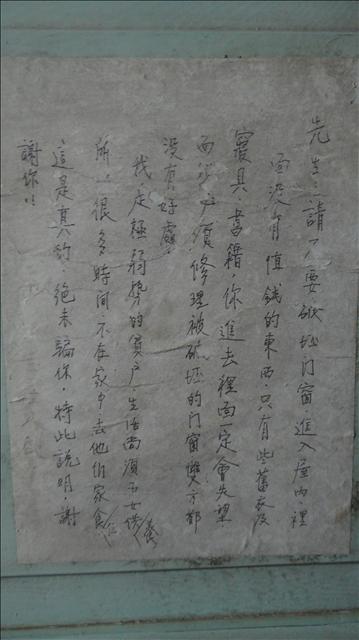 先生:請不要破坯门窗,進入屋內,裡
面没有值錢的東西,只有些舊衣及
寢具,書籍,你進去裡面一定會失望
而户須修理被破坯的门窗,雙方都
没有好處.
我是極弱勢的貧户,生活尚須子女供養
所以很多時間不在家中去他们家食
這是真的,絕未騙你,特此說明,謝
謝你!!